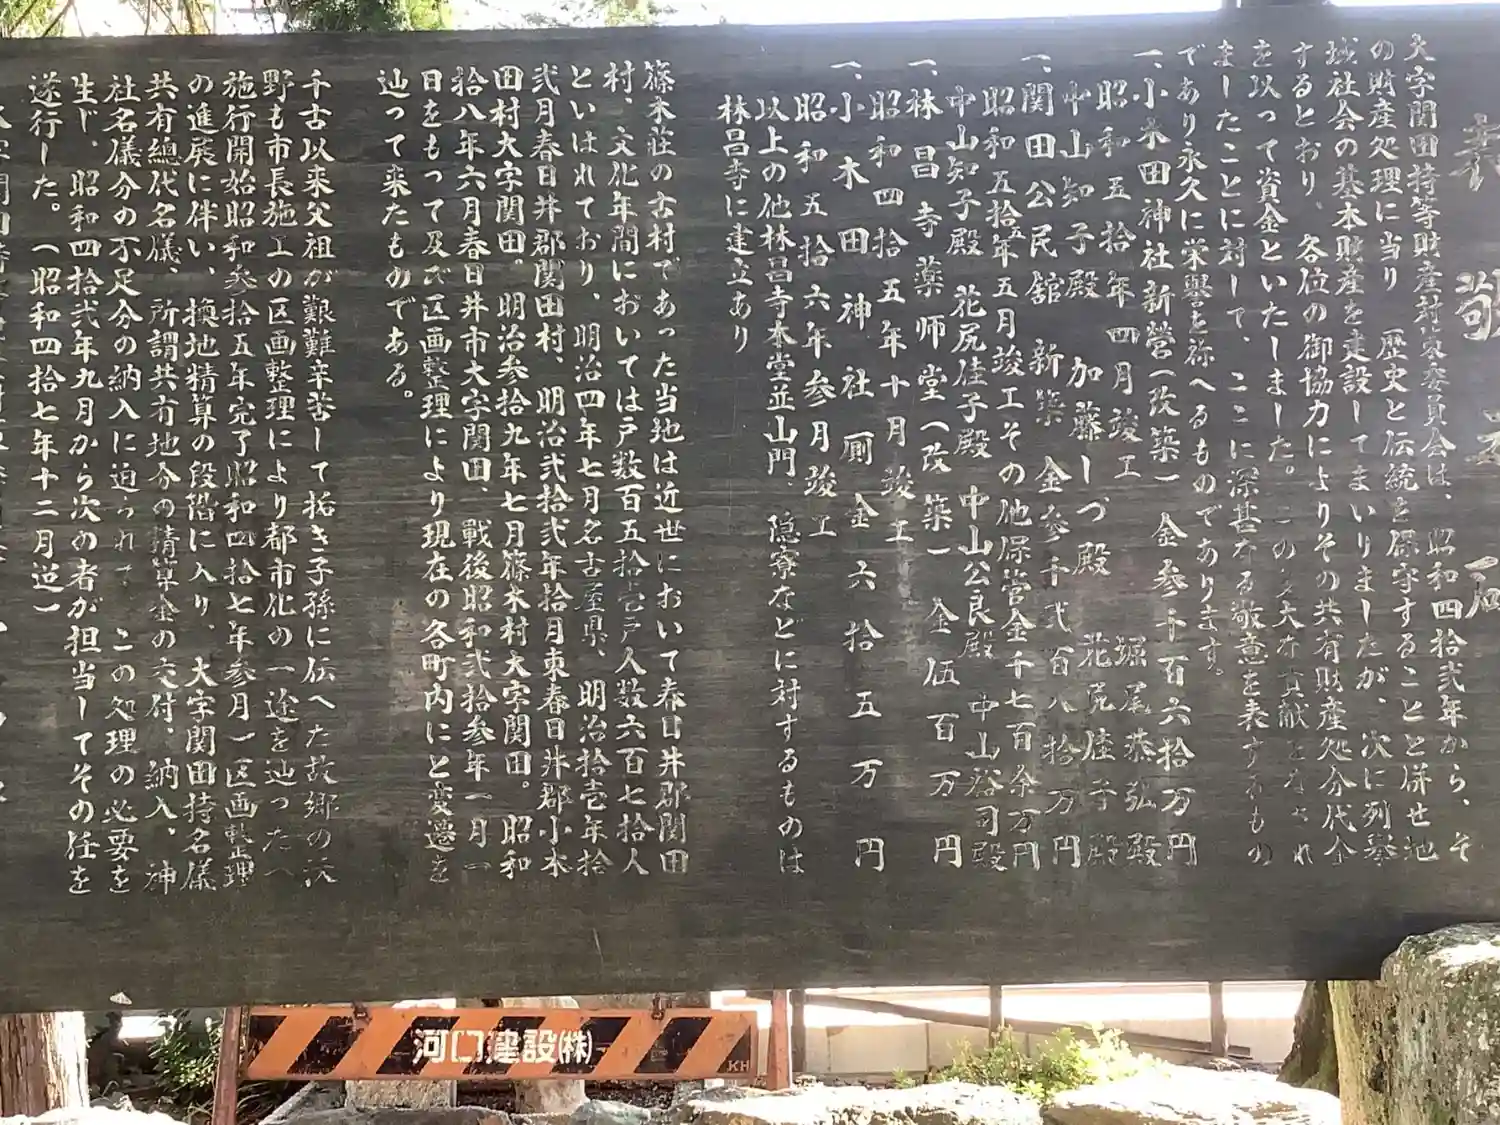 表敬者石
大字関田持等財産対策委員会は、昭和四拾弐年から、そ
の財産処理に当り 歴史と伝統を保守することと併せ地
域社会の基本財産を建設してまいりましたが、次に列挙
するとおり、各位の御協力によりその共有財産処分代金
を以って資金といたしました。この多大な貢献をなされ
ましたことに対して、ここに深甚なる敬意を表するもの
であり永久に栄誉を称へるものであります。
一、小木田神社新営(改築) 金参千百六拾万円
昭和五拾年四月竣工 堀尾恭弘殿
中山知子殿 加藤しづ殿 花尻佳子殿
一、関田公民舘新築 金参千弐百八拾万円
昭和五拾年五月竣工その他保管金千七百余万円
中山知子殿 花尻佳子殿 中山公良殿 中山裕司殿
一、林昌寺薬師堂(改築) 金伍百万円
昭和四拾五年十月竣工
一、小木田神社厠 金六拾五万円
昭和五拾六年参月竣工
以上の他林昌寺本堂並山門、隠寮などに対するものは
林昌寺に建立あり
篠木荘の古村であった当地は近世において春日井郡関田
村、文化年間においては戸数百五拾壱戸人数六百七拾人
といはれており、明治四年七月名古屋県、明治拾壱年拾
弐月春日井郡関田村、明治弐拾弐年拾月東春日井郡小木
田村大字関田、明治参拾九年七月篠木村大字関田。昭和
拾八年六月春日井市大字関田、戦後昭和弐拾参年一月一
日をもって及び区画整理により現在の各町内にと変遷を
辿って来たものである。
千古以来父祖が艱難辛苦して拓き子孫に伝へた故郷の沃
野も市長施工の区画整理により都市化の一途を辿ったへ
施行開始昭和参拾五年完了昭和四拾七年参月)区画整理
の進展に伴い、換地精算の段階に入り、大字関田持名儀
共有總代名儀、所謂共有地分の精算金の交付、納入、神
社名儀分の不足分の納入に迫られ、この処理の必要を
生じ、昭和四拾弐年九月から次の者が担当してその任を
遂行した。(昭和四拾七年十二月迄)